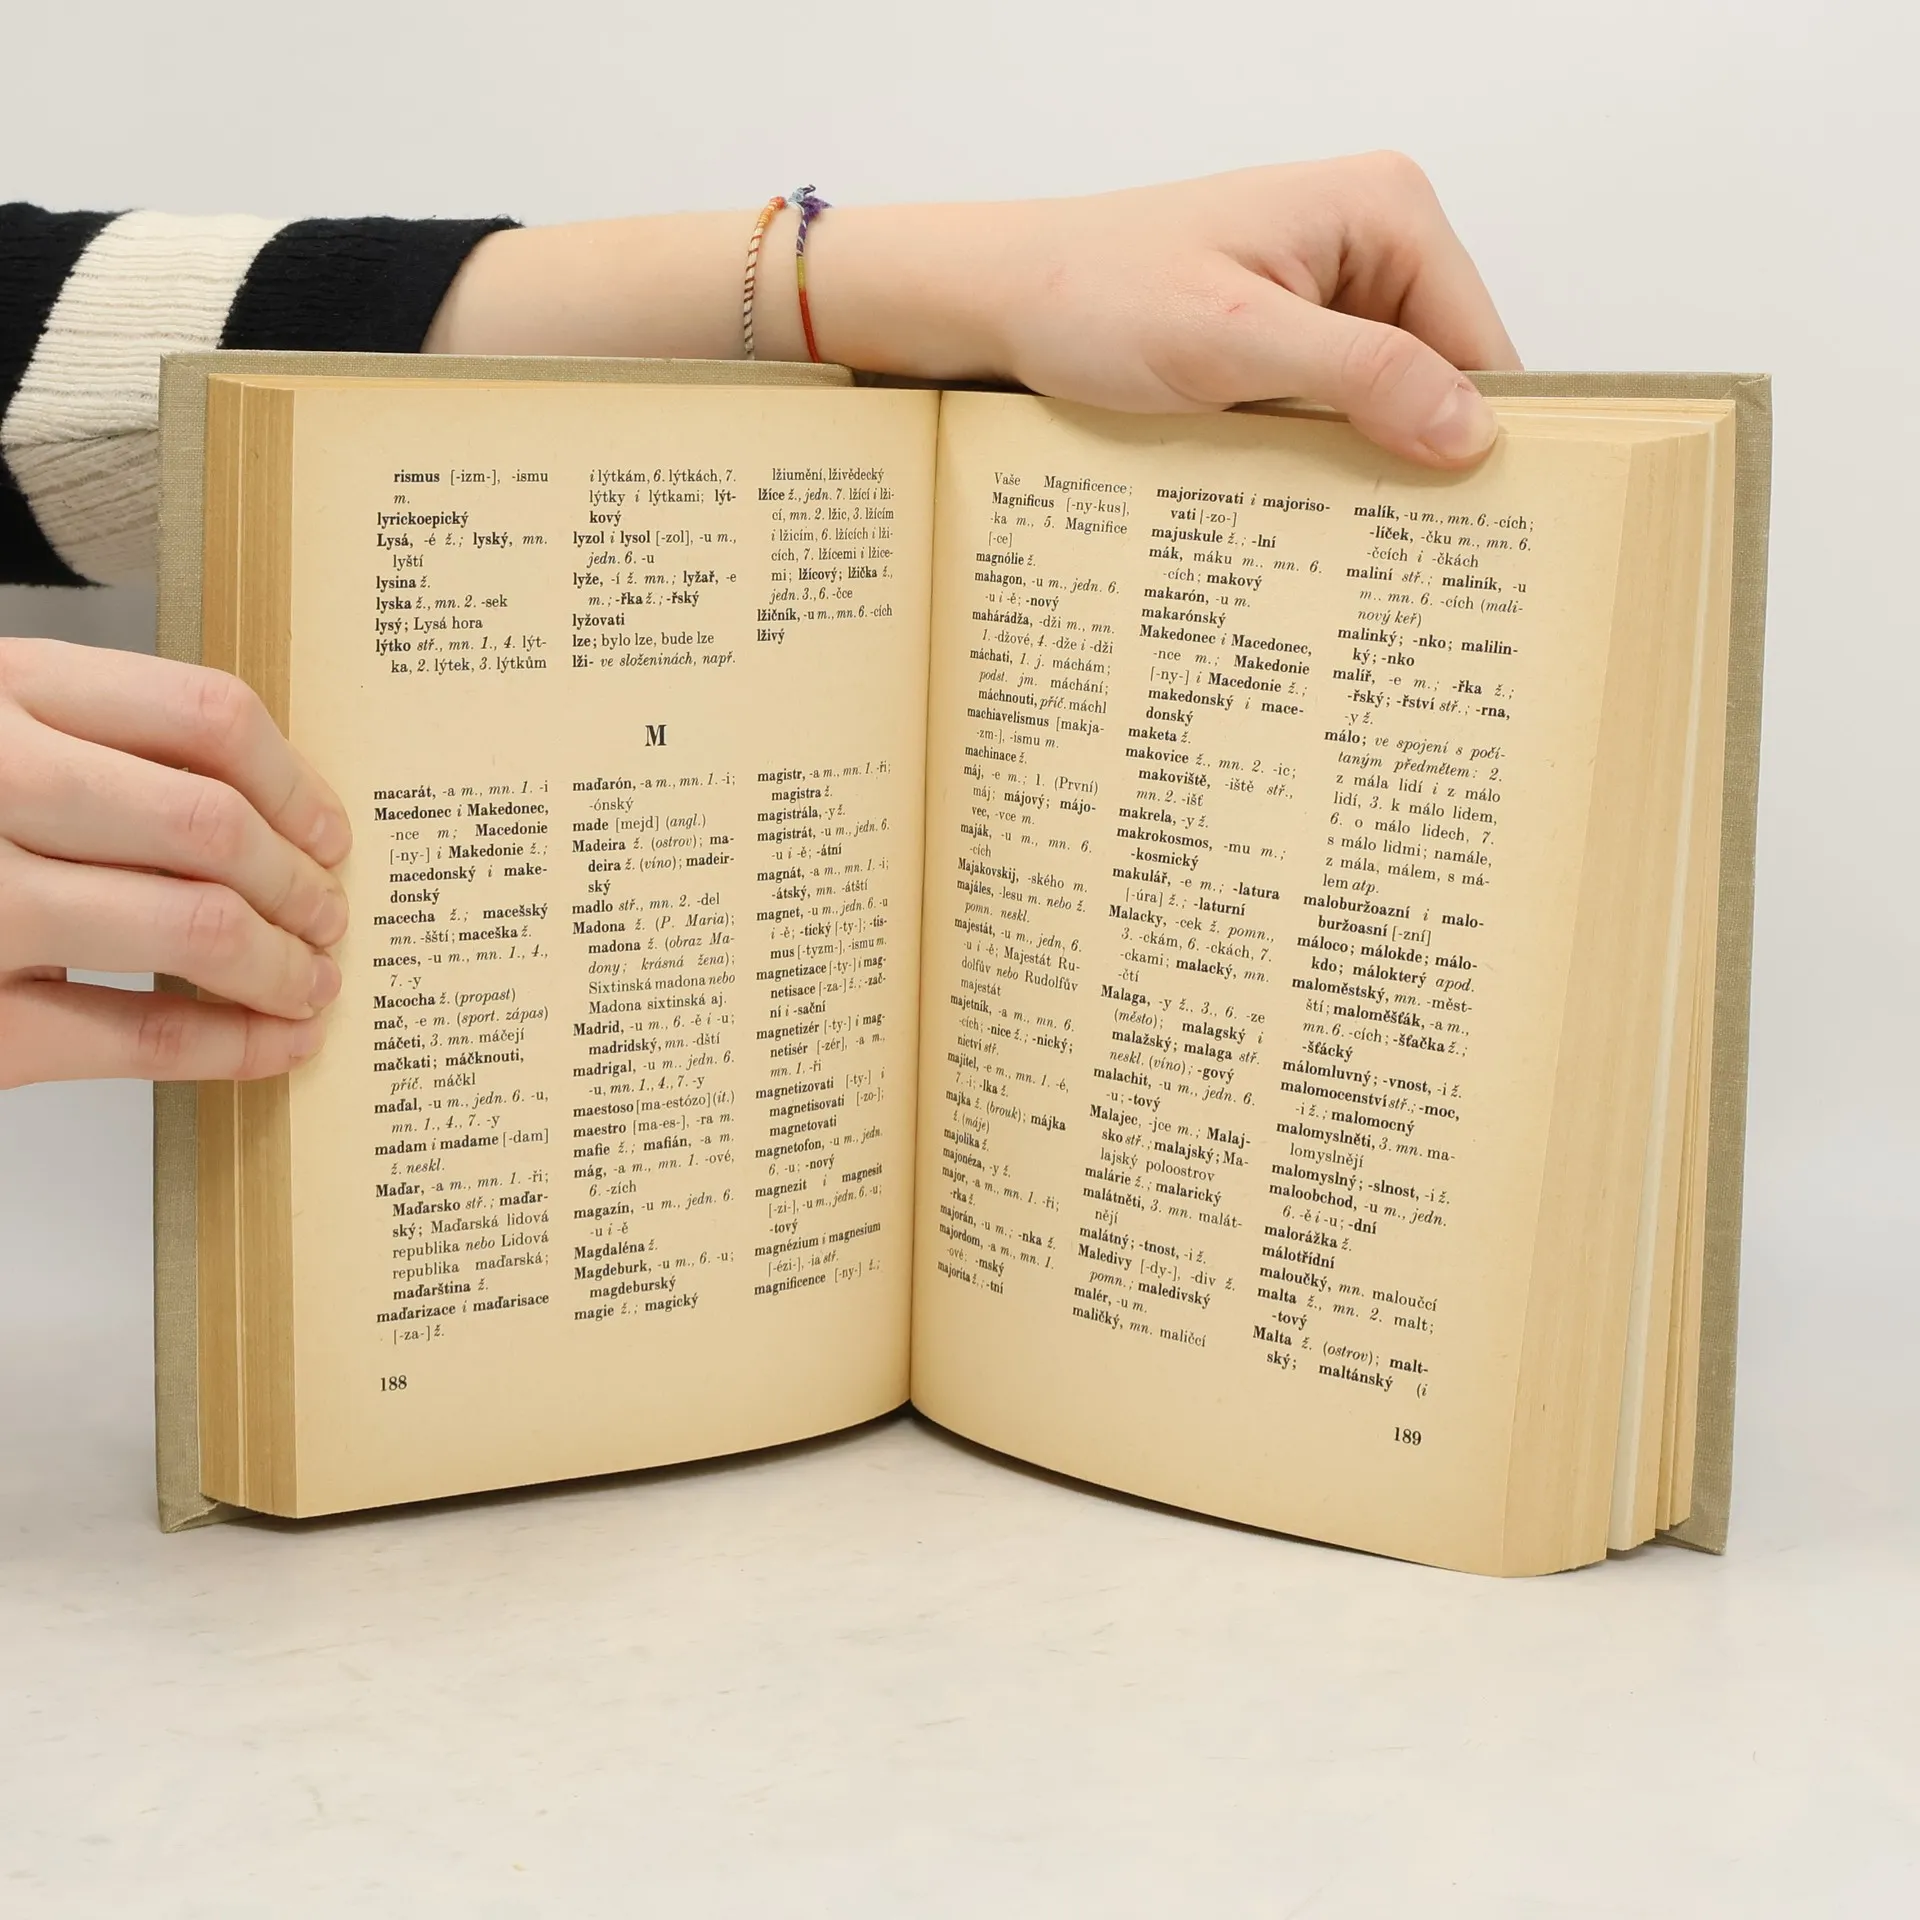 rismus [-izm-], -ismu
m.
lyrickoepický
Lysá, -é ž.; lyský, mn.
lyští
lysina ž.
lyska ž., mn. 2. -sek
lysý; Lysá hora
lýtko stř., mn. 1., 4. lýt-
ka, 2. lýtek, 3. lýtkům
i lýtkám, 6. lýtkách, 7.
lýtky i lýtkami; lýt-
kový
lyzol i lysol [-zol], -u m.,
jedn. 6. -u
lyže, -í ž. mn.; lyžař, -e
m.; -řka ž.; -řský
lyžovati
lze; bylo lze, bude lze
lži- ve složeninách, např.
lžiumění, lživědecký
lžíce ž., jedn. 7. lžící i lži-
cí, mn. 2. lžic, 3. lžícím
i lžicím, 6. lžících i lži-
cích, 7. lžícemi i lžice-
mi; lžícový; lžička ž.,
jedn. 3., 6. -čce
lžičník, -u m., mn. 6. -cích
lživý
M
macarát, -a m., mn. 1. -i
Macedonec i Makedonec,
-nce m; Macedonie
[-ny-] i Makedonie ž.;
macedonský i make-
donský
macecha ž.; macešský
mn. -šští; maceška ž.
maces, -u m., mn. 1., 4.,
7. -y
Macocha ž. (propast)
mač, -e m. (sport. zápas)
máčeti, 3. mn. máčejí
mačkati; máčknouti,
příč. máčkl
maďal, -u m., jedn. 6. -u,
mn. 1., 4., 7. -y
madam i madame [-dam]
ž. neskl.
Maďar, -a m., mn. 1. -ři;
Maďarsko stř.; maďar-
ský; Maďarská lidová
republika nebo Lidová
republika maďarská;
maďarština ž.
maďarizace i maďarisace
[-za-] ž.
maďarón, -a m., mn. 1. -i;
-ónský
made [mejd] (angl.)
Madeira ž. (ostrov); ma-
deira ž. (víno); madeir-
ský
madlo stř., mn. 2. -del
Madona ž. (P. Maria);
madona ž. (obraz Ma-
dony; krásná žena);
Sixtinská madona nebo
Madona sixtinská aj.
Madrid, -u m., 6. -ě i -u;
madridský, mn. -dští
madrigal, -u m., jedn. 6.
-u, mn. 1., 4., 7. -y
maestoso [ma-estózo] (it.)
maestro [ma-es-], -ra m.
mafie ž.; mafián, -a m.
mág, -a m., mn. 1. -ové,
6. -zích
magazín, -u m., jedn. 6.
-u i -ě
Magdaléna ž.
Magdeburk, -u m., 6. -u;
magdeburský
magie ž.; magický
magistr, -a m., mn. 1. -ři;
magistra ž.
magistrála, -y ž.
magistrát, -u m., jedn. 6.
-u i -ě; -átní
magnát, -a m., mn. 1. -i;
-átský, mn. -átští
magnet, -u m., jedn. -u
i -ě; -tický [-ty-]; -tis-
mus [-tyzm-], -ismu m.
magnetizace [-ty-] i mag-
netisace [-za-] ž.; -zač-
ní i -sační
magnetizér [-ty-] i mag-
netisér [-zér], -a m.,
mn. 1. -ři
magnetizovati [-ty-] i
magnetisovati [-zo-];
magnetovati
magnetofon, -u m., jedn.
6. -u; -nový
magnezit i magnesit
[-zi-], -u m., jedn. 6. -u;
-tový
magnézium i magnesium
[-ézi-], -ia stř.
magnificence [-ny-] ž.;
188
Vaše Magnificence;
Magnificus [-ny-kus],
-ka m., 5. Magnifice
[-ce]
magnólie ž.
mahagon, -u m., jedn. 6.
-u i -ě; -nový
mahárádža, -dži m., mn.
1. -džové, 4. -dže i -dži
máchati, 1. j. máchám;
podst. jm. máchání;
máchnouti, příč. máchl
machiavelismus [makja-
-zm-], -ismu m.
machinace ž.
máj, -e m.; 1. (První)
máj; májový; májo-
vec, -vce m.
maják, -u m., mn. 6.
-cích
Majakovskij, -ského m.
majáles, -lesu m. nebo ž.
pomn. neskl.
majestát, -u m., jedn. 6.
-u i -ě; Majestát Ru-
dolfův nebo Rudolfův
majestát
majetník, -a m., mn. 6.
-cích; -nice ž.; -nický;
-nictví stř.
majitel, -e m., mn. 1. -é,
7. -i; -lka ž.
majka ž. (brouk); májka
ž. (máje)
majolika ž.
majonéza, -y ž.
major, -a m., mn. 1. -ři;
-rka ž.
majorán, -u m.; -nka ž.
majordom, -a m., mn. 1.
-ové; -mský
majorita ž.; -tní
majorizovati i majoriso-
vati [-zo-]
majuskule ž.; -lní
mák, máku m., mn. 6.
-cích; makový
makarón, -u m.
makarónský
Makedonec i Macedonec,
-nce m.; Makedonie
[-ny-] i Macedonie ž.;
makedonský i mace-
donský
maketa ž.
makovice ž., mn. 2. -ic;
makoviště, -iště stř.,
mn. 2. -išť
makrela, -y ž.
makrokosmos, -mu m.;
-kosmický
makulář, -e m.; -latura
[-úra] ž.; -laturní
Malacky, -cek ž. pomn.,
3. -ckám, 6. -ckách, 7.
-ckami; malacký, mn.
-čtí
Malaga, -y ž., 3., 6. -ze
(město); malagský i
malažský; malaga stř.
neskl. (víno); -gový
malachit, -u m., jedn. 6.
-u; -tový
Malajec, -jce m.; Malaj-
sko stř.; malajský; Ma-
lajský poloostrov
malárie ž.; malarický
malátněti, 3. mn. malát-
nějí
malátný; -tnost, -i ž.
Maledivy [-dy-], -div ž.
pomn.; maledivský
malér, -u m.
maličký, mn. maličcí
malík, -u m., mn. 6. -cích;
-líček, -čku m., mn. 6.
-čcích i -čkách
maliní stř.; maliník, -u
m., mn. 6. -cích (mali-
nový keř)
malinký; -nko; malilin-
ký; -nko
malíř, -e m.; -řka ž.;
-řský; -řství stř.; -rna,
-y ž.
málo; ve spojení s počí-
taným předmětem: 2.
z mála lidí i z málo
lidí, 3. k málo lidem,
6. o málo lidech, 7.
s málo lidmi; namále,
z mála, málem, s má-
lem atp.
maloburžoazní i malo-
buržoasní [-zní]
máloco; málokde; málo-
kdo; málokterý apod.
maloměstský, mn. -měst-
ští; maloměšťák, -a m.,
mn. 6. -cích; -šťačka ž.;
-šťácký
málomluvný; -vnost, -i ž.
malomocenství stř.; -moc,
-i ž.; malomocný
malomyslněti, 3. mn. ma-
lomyslnějí
malomyslný; -slnost, -i ž.
maloobchod, -u m., jedn.
6. -ě i -u; -dní
malorážka ž.
málotřídní
maloučký, mn. maloučcí
malta ž., mn. 2. malt;
-tový
Malta ž. (ostrov); malt-
ský; maltánský (i
189